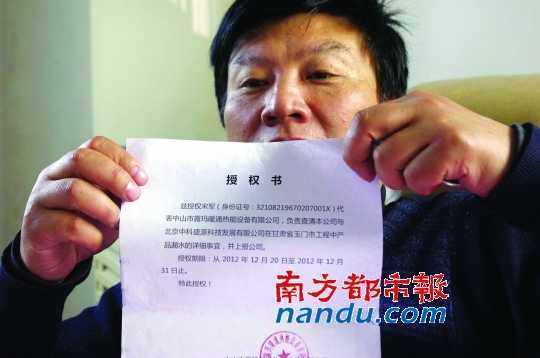 授权书
兹授权宋军（身份证号：32108219670207001X）代
表中山市喜玛暖通热能设备有限公司，负责查清本公司与
北京中科盛源科技发展有限公司在甘肃省玉门市工程中产
品漏水的详细事宜，并上报公司。
授权期限：从 2012 年 12 月 20 日至 2012 年 12 月
31 日止。
特此授权！
南方都市報
nandu.com